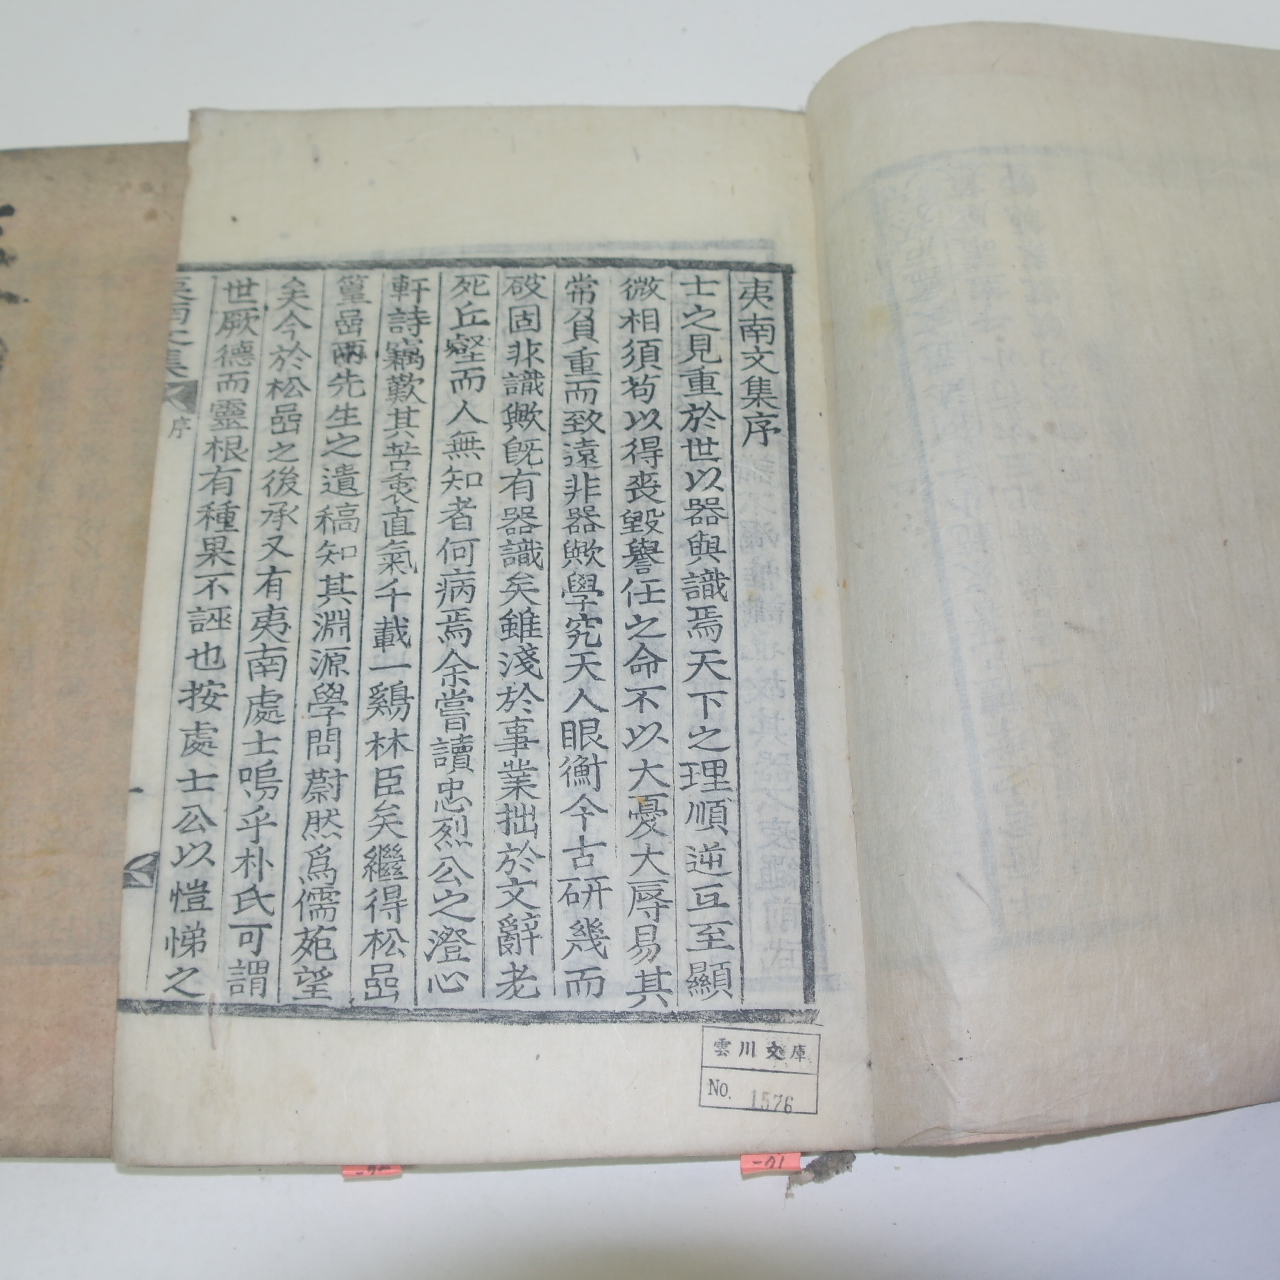 夷南文集序
士之見重於世以器與識焉天下之理順逆互至顯
微相須苟以得喪毀譽任之命不以大憂大辱易其
常負重而致遠非器歟學究天人眼衡今古研幾而
破固非識歟旣有器識矣雖淺於事業拙於文辭老
死丘壑而人無知者何病焉余嘗讀忠烈公之澄心
軒詩竊歎其苦衷直氣千載一鷄林臣矣繼得松嵒
篁嵒兩先生之遺稿知其淵源學問蔚然爲儒苑望
矣今於松嵒之後承又有夷南處士嗚乎朴氏可謂
世厥德而靈根有種果不誣也按處士公以愷悌之
夷南文集
序
雲川文庫
No. 1576